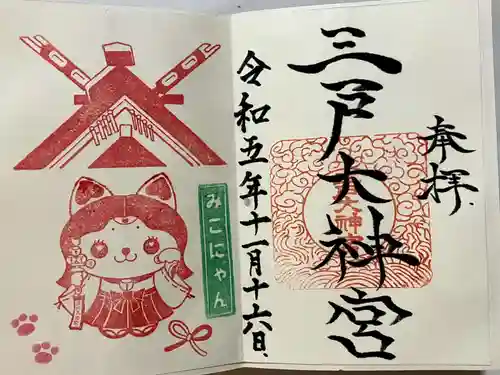 奉拝
三戸大神宮
令和五年十一月十六日
みこにゃん